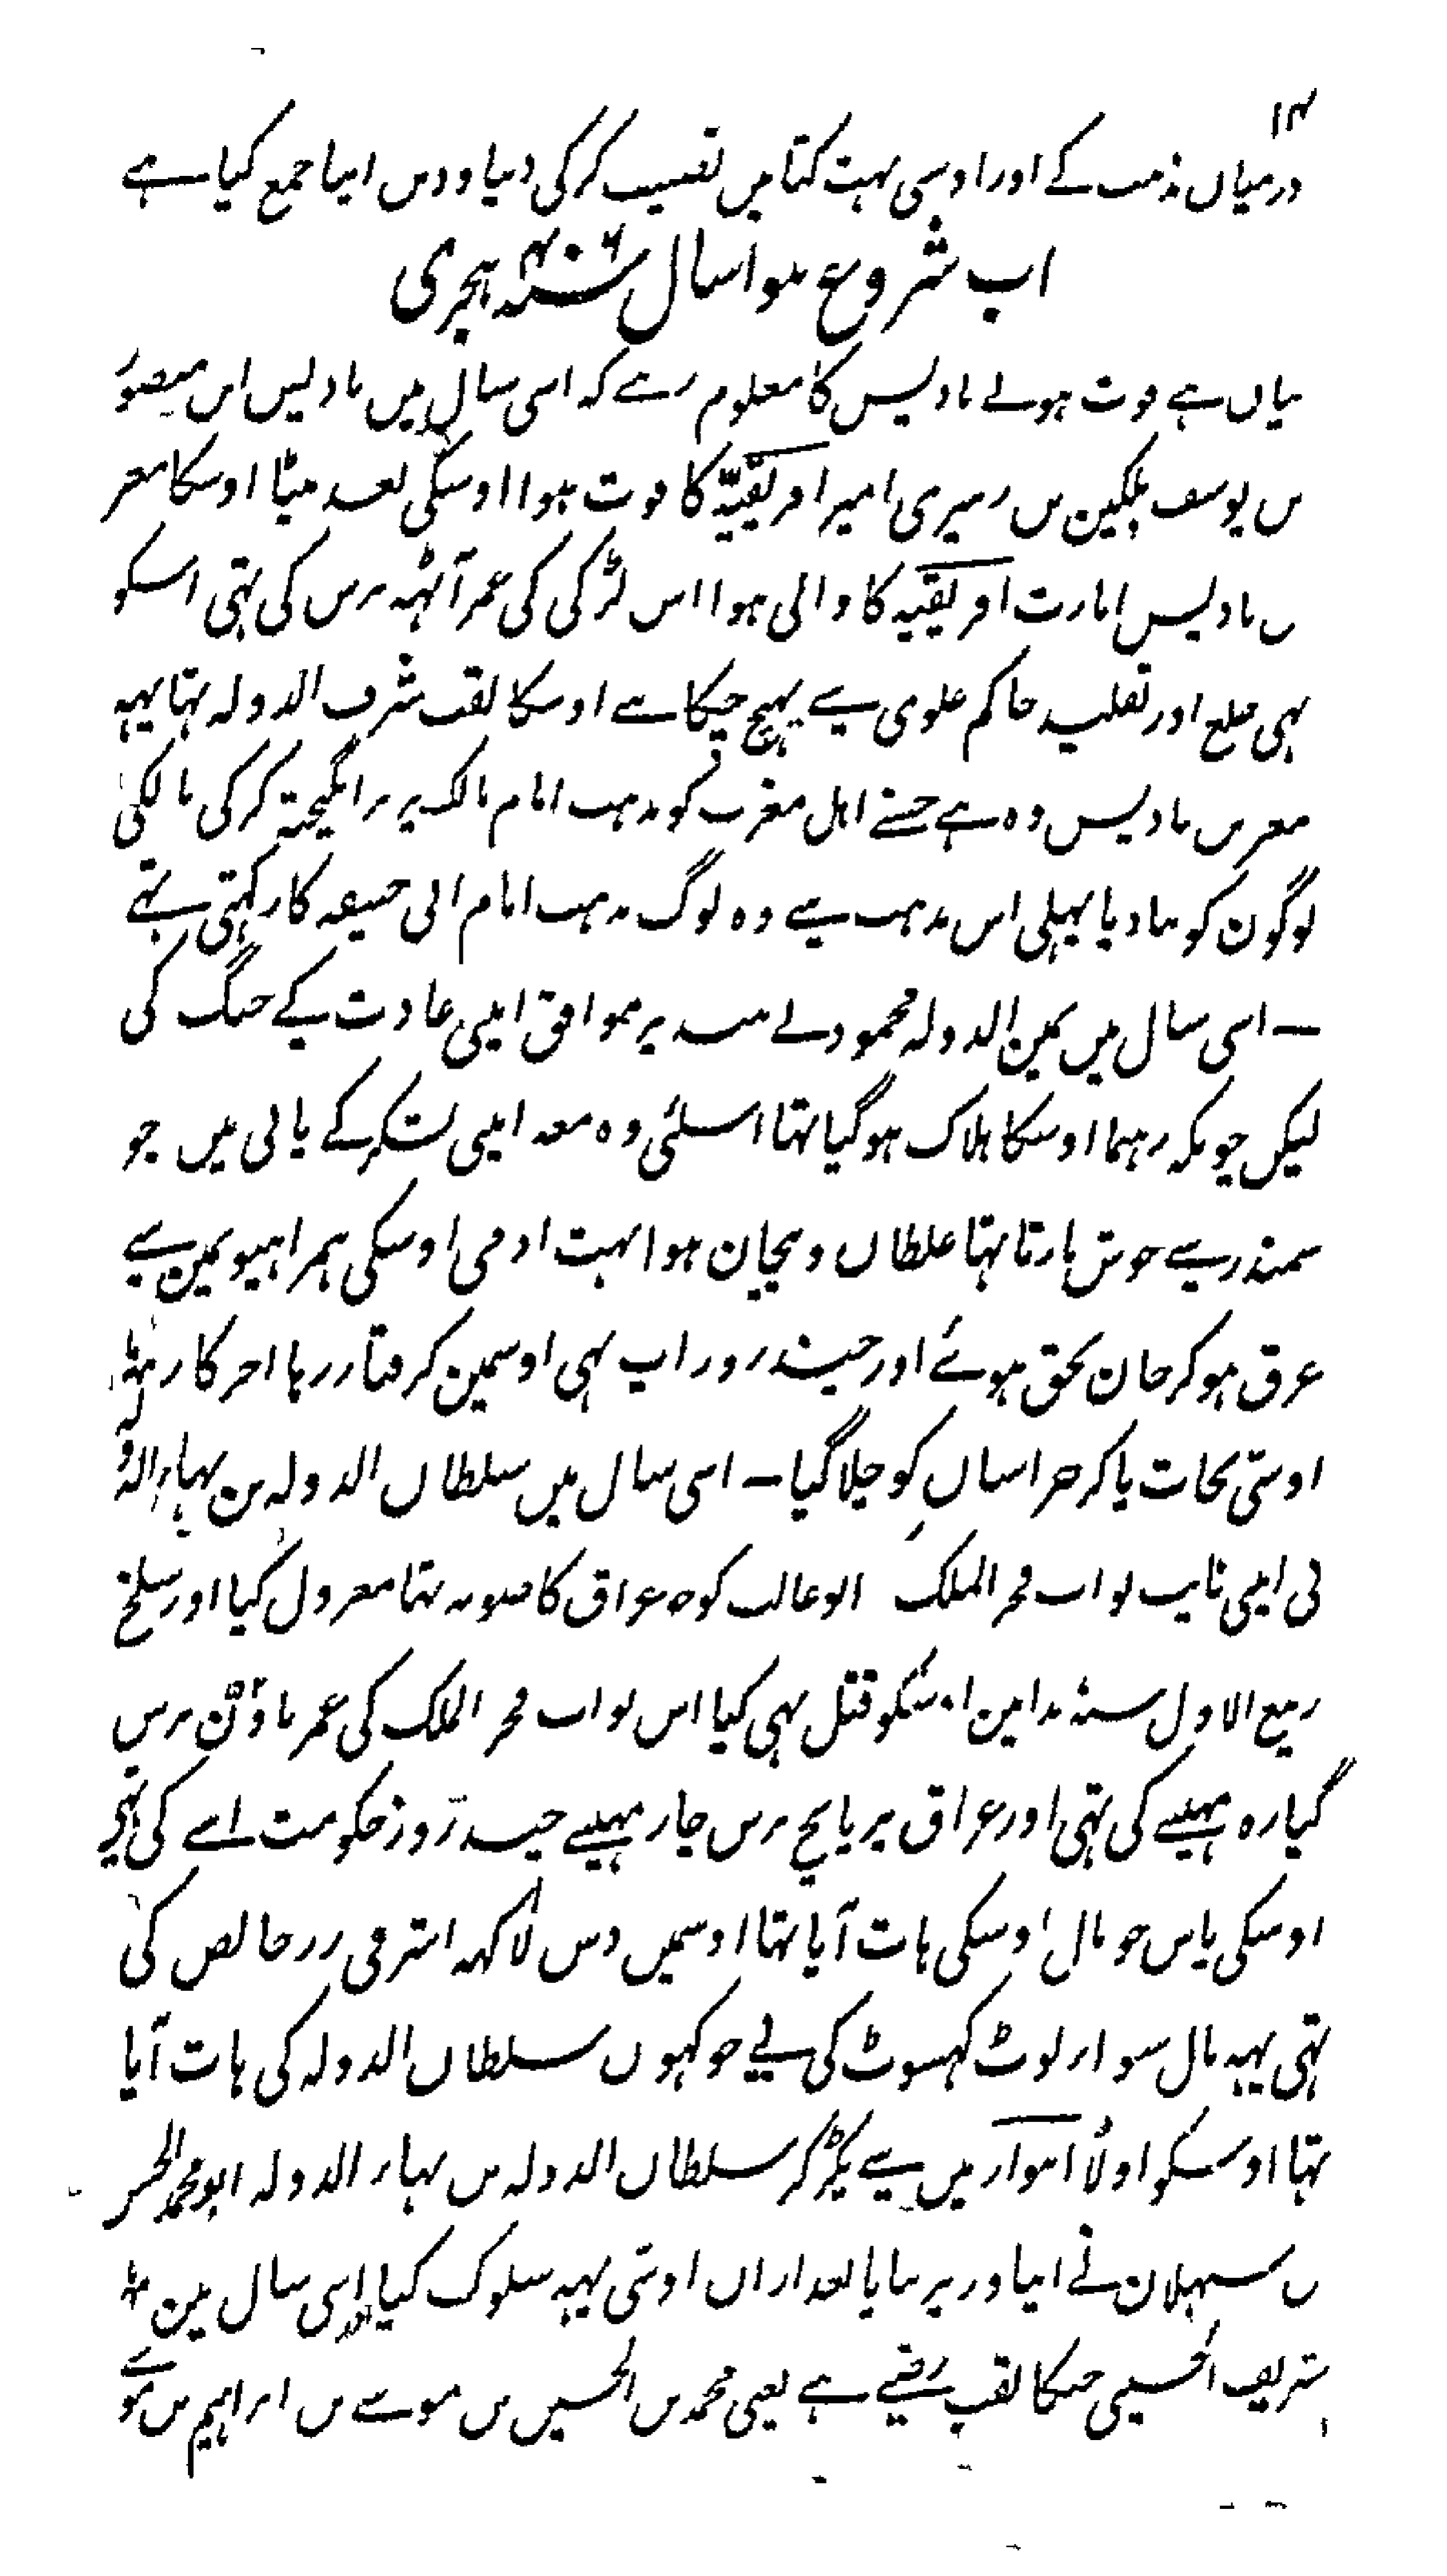 ۱۴
درمیان مذہب کے اور اوسی بہت کتابیں تصنیف کر کی دنیا و دین اپنا جمع کیا ہے
اب شروع ہوا سال سنہ ۴۰۶ ہجری
بیان ہے فوت ہونے بادیس کا معلوم رہے کہ اسی سال میں بادیس ابن منصور
بن یوسف بلکین بن زیری امیر افریقیّہ کا فوت ہوا اوسکی بعد بیٹا اوسکا معز
بن بادیس امارت افریقیہ کا والی ہوا اس لڑکی کی عمر آٹہہ برس کی تہی اسکو
بہی خلع اور تقلید حاکم علوی سے پہنچ چکا ہے اوسکا لقب شرف الدولہ تہا یہہ
معز بن بادیس وہ ہے جسنے اہل مغرب کو مذہب امام مالک پر برانگیختہ کر کی مالکی
لوگون کو بنا دیا پہلی اس مذہب سے وہ لوگ مذہب امام ابی حنیفہ کا رکہتی تہے
ــ اسی سال میں یمین الدولہ محمود نے ہند پر موافق اپنی عادت کے جنگ کی
لیکن چونکہ رہنما اوسکا ہلاک ہوگیا تہا اسلئی وہ معہ اپنی لشکر کے پانی میں جو
سمندر سے جوش مارتا تہا غلطان و پیچان ہوا بہت ادمی اوسکی ہمراہیو نمین سے
غرق ہو کر جان بحق ہوئے اور چند روز اپ بہی اوسمین گرفتار رہا اخر کار
اوستی نجات پاکر خراسان کو چلا گیا ــ اسی سال میں سلطان الدولہ بن بہاء الدولہ
نی اپنی نایب نواب فخر الملک ابو غالب کو جو عراق کا صوبہ تہا معزول کیا اور سلخ
ربیع الاول سنہ ہذا مین اوسکو قتل بہی کیا اس نواب فخر الملک کی عمر باون برس
گیارہ مہینے کی تہی اور عراق پر پانچ برس چار مہینے چند روز حکومت اسے کی تہی
اوسکی پاس جو مال اوسکی ہات آیا تہا اوسمیں دس لاکہہ اشرفی زر خالص کی
تہی یہہ مال سوار لوٹ کہسوٹ کی ہے جو کہون سلطان الدولہ کی ہات آیا
تہا اوسکو اولاً اہواز میں سے پکڑ کر سلطان الدولہ بن بہاء الدولہ ابو محمد الحسن
بن سہلان نے اپنا وزیر بنایا بعد ازاں اوستی یہہ سلوک کیا اور اسی سال مین
شریف الحسینی جنکا لقب رضے ہے یعنی محمد بن الحسین بن موسے بن ابراہیم بن موسے